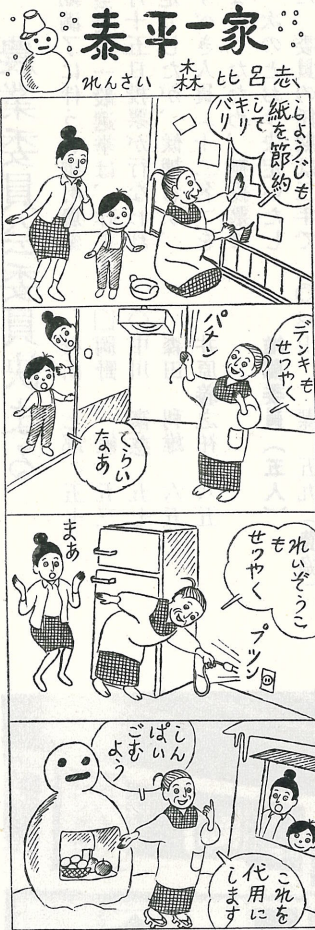 泰平一家
れんさい 森比呂志
しょうじも
紙を節約
して
キリ
バリ
デンキも
せつやく
パチン
くらい
なあ
れいぞうこ
も
せつやく
まあ
プツン
しん
ぱい
ごむ
よう
これを
代用に
します